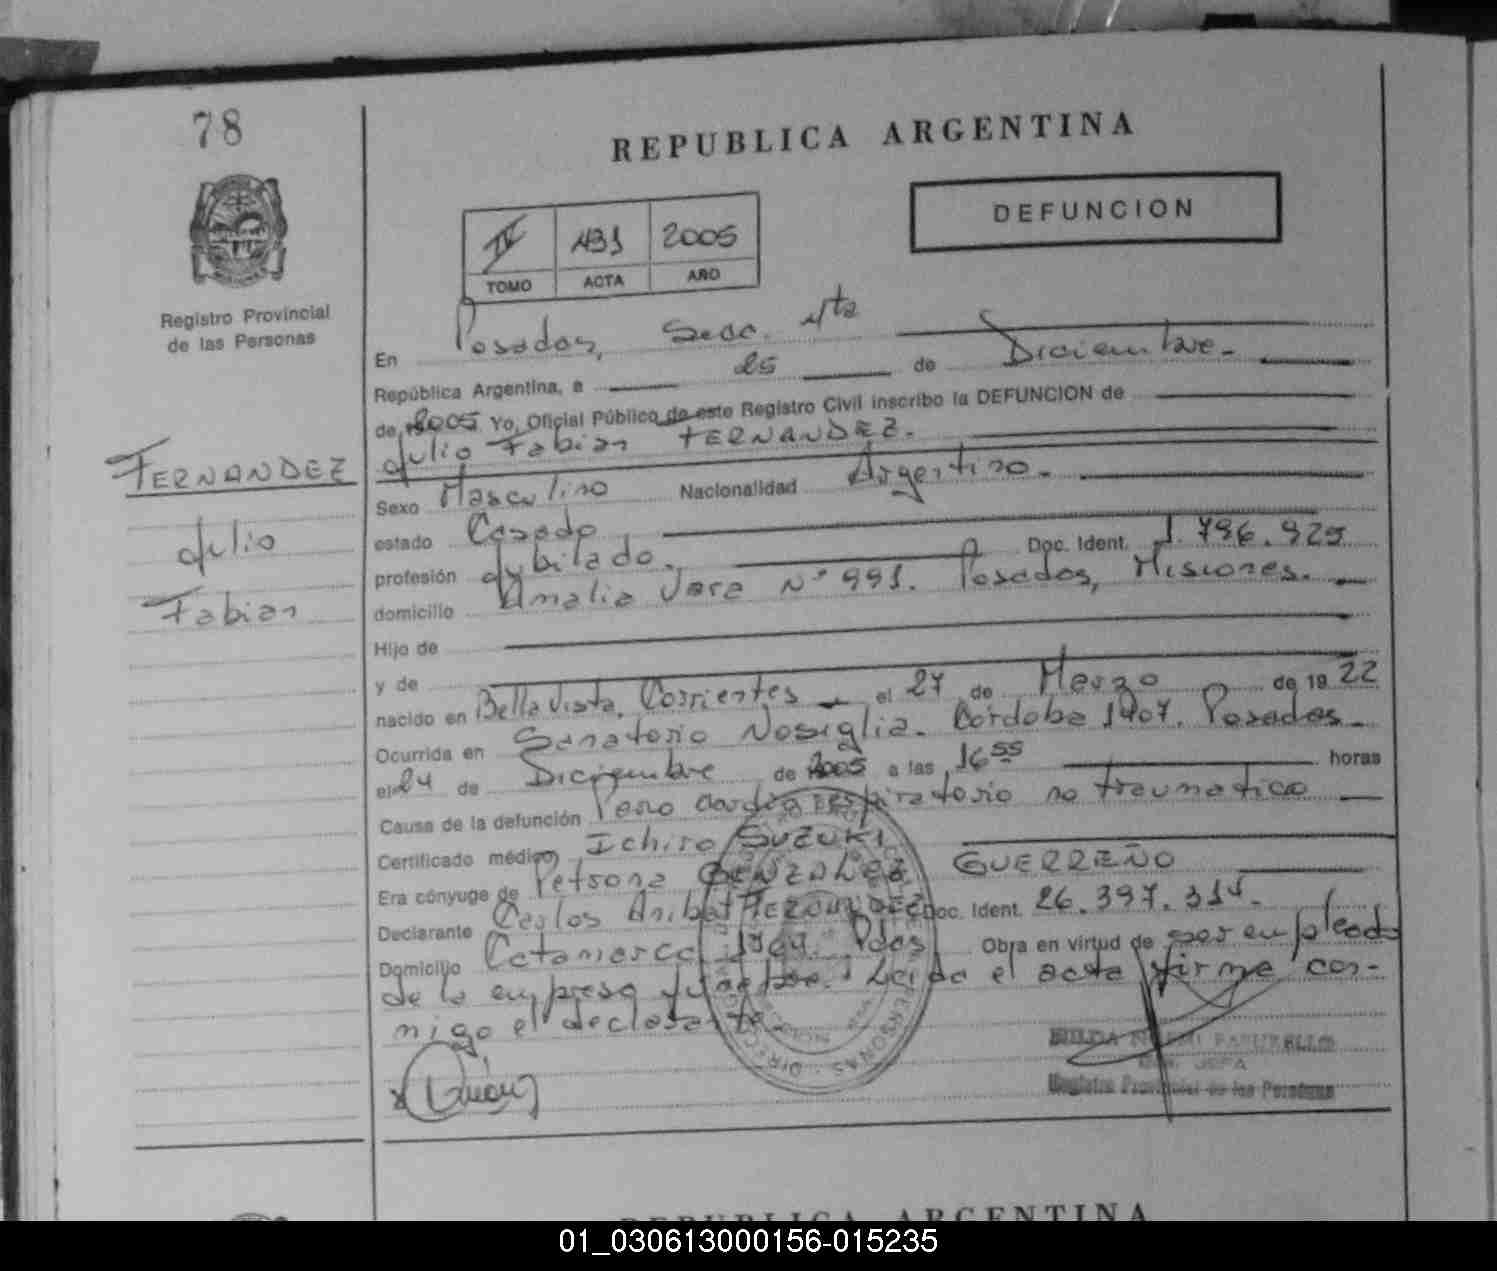 78
REPUBLICA ARGENTINA
DEFUNCION
IV 431 2005
TOMO ACTA AÑO
Registro Provincial
de las Personas
FERNANDEZ
Julio
Fabian
En Posadas, Secc. 4ta
República Argentina, a 25 de Diciembre.
de 2005 Yo, Oficial Público de este Registro Civil inscribo la DEFUNCION de
Julio Fabian FERNANDEZ.
Sexo Masculino Nacionalidad Argentino.
estado Casado Doc. Ident. 1.796.929
profesión Jubilado.
domicilio Amalia Vera Nº 991. Posadas, Misiones.
Hijo de
y de
nacido en Bella Vista, Corrientes el 27 de Marzo de 19 22
Ocurrida en Sanatorio Nosiglia. Córdoba 1907. Posadas.
el 24 de Diciembre de 2005 a las 16 55 horas
Causa de la defunción Paro cardio respiratorio no traumatico
Certificado médico Ichiro SUZUKI
Era cónyuge de Petrona GONZALEZ GUERREÑO
Declarante Carlos Anibal Doc. Ident. 26.397.314.
Domicilio Catamarca 1969. Pdas Obra en virtud de ser empleado
de la empresa funebre. Leida el acta firma con-
migo el declarante.
Registro Provincial de las Personas
REPUBLICA ARGENTINA
01_030613000156-015235